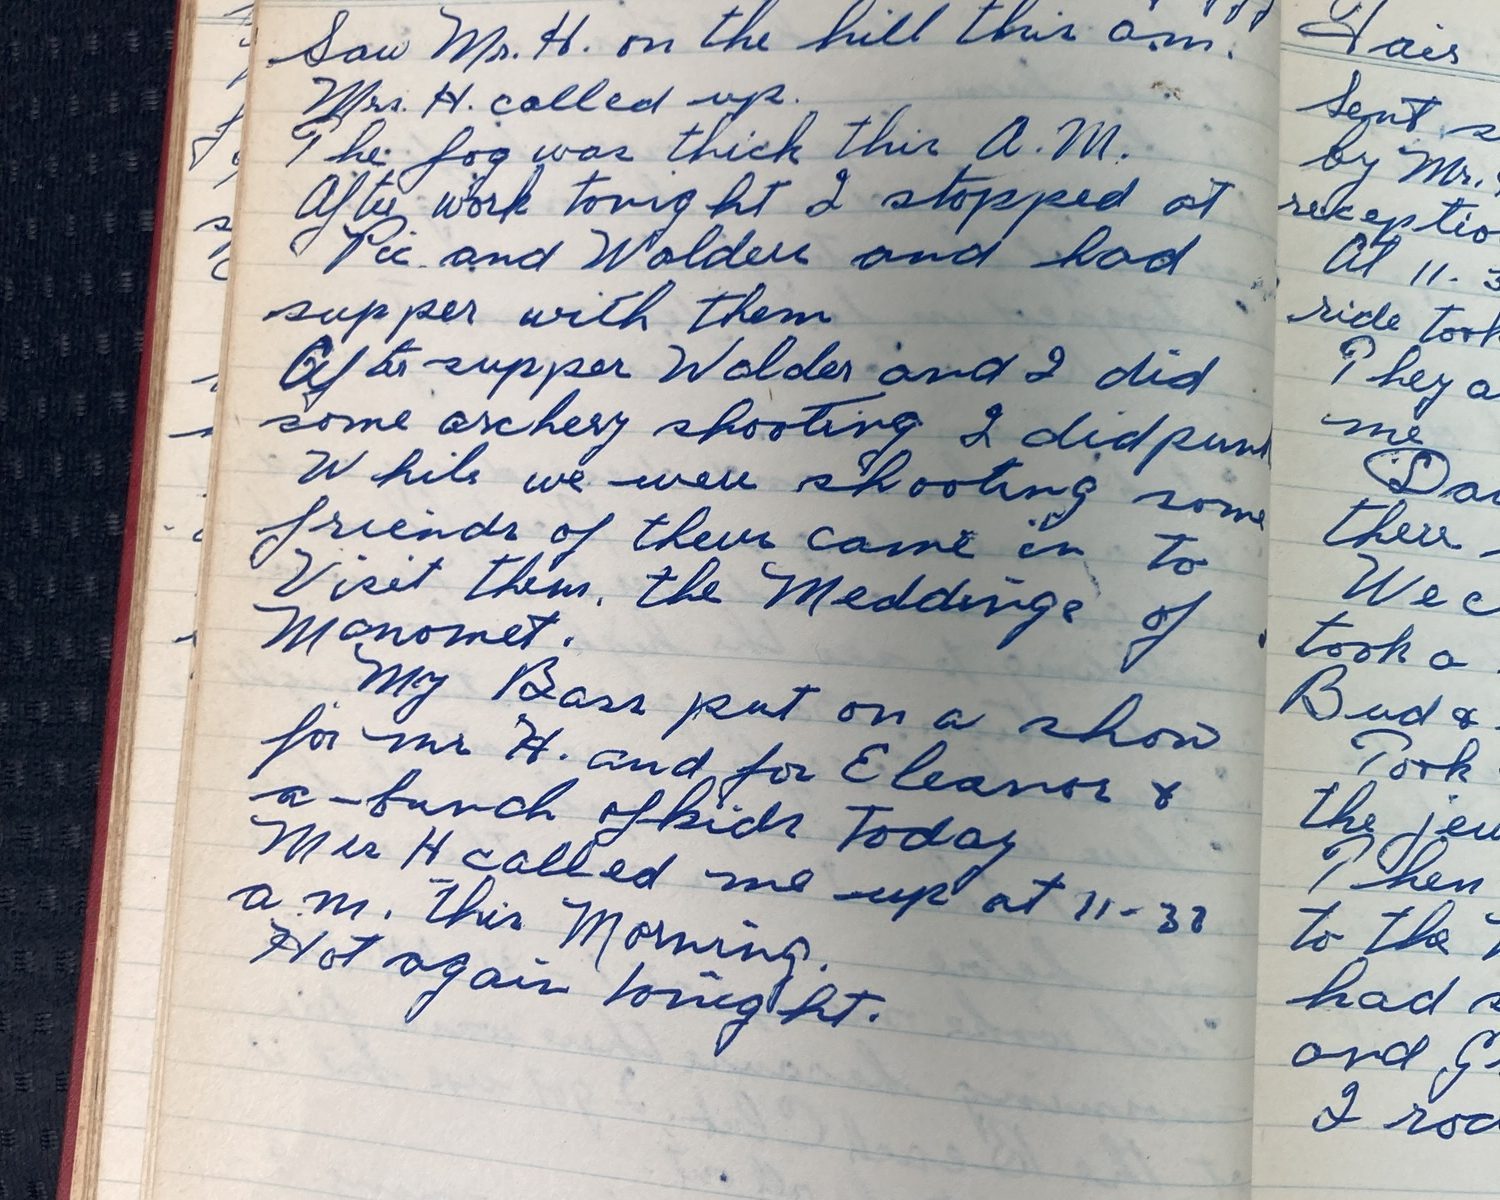 Saw Mr. H. on the hill this a.m.
Mrs. H. called up.
The fog was thick this A.M.
After work tonight I stopped at
Pic. and Walders and had
supper with them
After supper Walder and I did
some archery shooting I did punk
While we were shooting some
friends of theirs came in to
Visit them. the Meddings of
Manomet.
My Bass put on a show
for mr H. and for Eleanor &
a bunch of kids Today
Mrs H called me up at 11-30
a.m. this Morning.
Hot again tonight.
Fair
Sent
by Mr.
At 11-3
ride took
They
me
there
We
took a
Bud &
Took
the
Then
to the
had
and
I